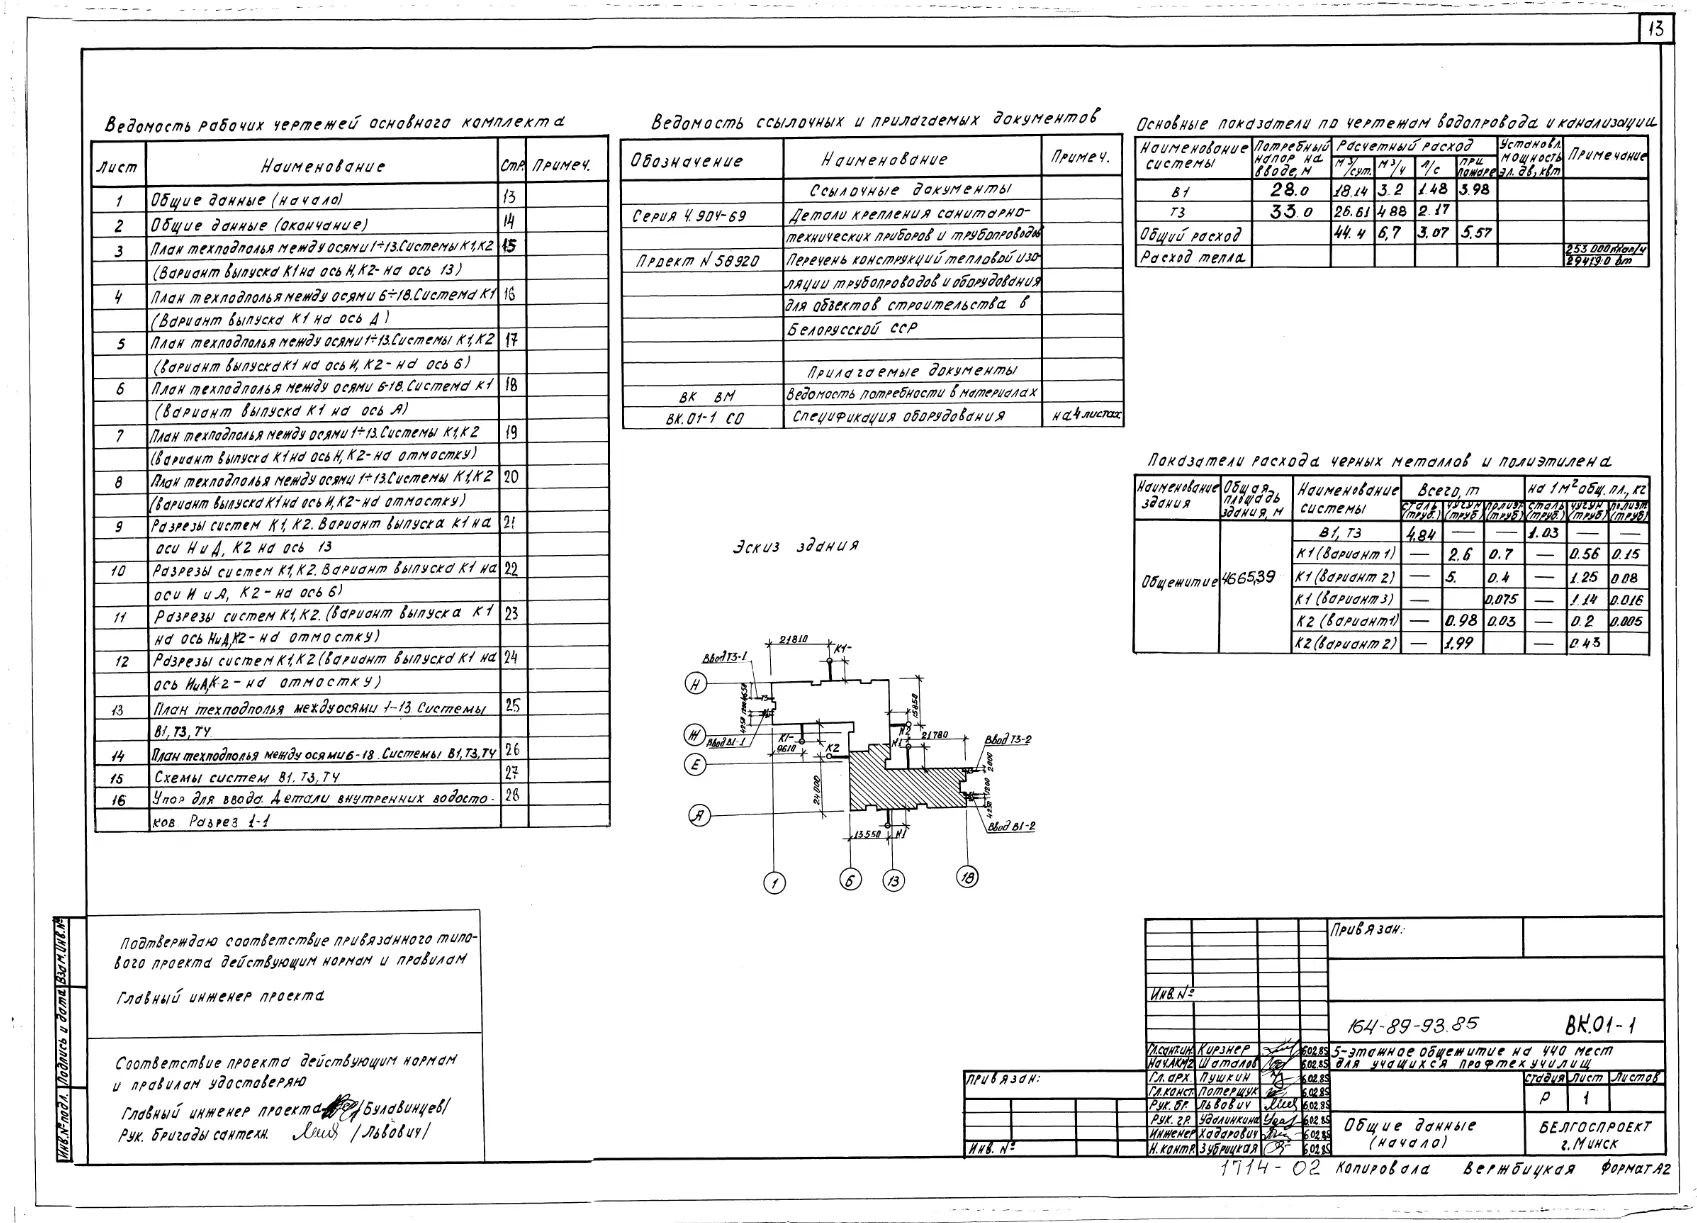 13
Ведомость рабочих чертежей основного комплекта
Лист Наименование Стр. Примеч.
1 Общие данные (начало) 13
2 Общие данные (окончание) 14
3 План техподполья между осями 1÷13. Системы К1, К2 15
(Вариант выпуска К1 на ось Н, К2- на ось 13)
4 План техподполья между осями 6÷18. Система К1 16
(Вариант выпуска К1 на ось Д)
5 План техподполья между осями 1÷13. Системы К1, К2 17
(Вариант выпуска К1 на ось И, К2- на ось 6)
6 План техподполья между осями 6-18. Система К1 18
(Вариант выпуска К1 на ось Л)
7 План техподполья между осями 1÷13. Системы К1, К2 19
(Вариант выпуска К1 на ось Н, К2- на отмостку)
8 План техподполья между осями 1÷13. Системы К1, К2 20
(Вариант выпуска К1 на ось И, К2- на отмостку)
9 Разрезы систем К1, К2. Вариант выпуска К1 на 21
оси Н и Д, К2 на ось 13
10 Разрезы систем К1, К2. Вариант выпуска К1 на 22
оси И и Л, К2- на ось 6)
11 Разрезы систем К1, К2. (Вариант выпуска К1 23
на ось НиД, К2- на отмостку)
12 Разрезы систем К1, К2 (Вариант выпуска К1 на 24
ось ИиЛ, К-2- на отмостку)
13 План техподполья между осями 1-13 Системы 25
В1, Т3, ТЧ
14 План техподполья между осями 6-18. Системы В1, Т3, ТЧ 26
15 Схемы систем В1, Т3, ТЧ 27
16 Упор для ввода. Детали внутренних водосто- 28
ков Разрез 1-1
Ведомость ссылочных и прилагаемых документов
Обозначение Наименование Примеч.
Ссылочные документы
Серия 4.904-69 Детали крепления санитарно-
технических приборов и трубопроводов
Проект № 58920 Перечень конструкций тепловой изо-
ляции трубопроводов и оборудования
для объектов строительства в
Белорусской ССР
Прилагаемые документы
ВК ВМ Ведомость потребности в материалах
ВК.01-1 СО Спецификация оборудования на 4 листах
Основные показатели по чертежам водопровода и канализации
Наименование системы Потребный напор на вводе, м Расчетный расход м³/сут. м³/ч л/с при пожаре Установл. мощность эл. дв., кВт Примечание
В1 28.0 18.14 3.2 1.48 3.98
Т3 33.0 26.61 4.88 2.17
Общий расход 44.4 6,7 3.07 5.57
Расход тепла 253 000 ккал/ч
294190 вт
Показатели расхода черных металлов и полиэтилена
Наименование здания Общая площадь здания, м Наименование системы Всего, т на 1 м² общ. пл., кг
сталь (труб.) чугун (труб) полиэт. (труб) сталь (труб.) чугун (труб) полиэт. (труб)
В1, Т3 4,84 — — 1.03 — —
К1 (Вариант 1) — 2.6 0.7 — 0.56 0.15
Общежитие 4665,39 К1 (Вариант 2) — 5. 0.4 — 1.25 0.08
К1 (Вариант 3) — 0,075 — 1.14 0.016
К2 (Вариант 1) — 0.98 0.03 — 0.2 0.005
К2 (Вариант 2) — 1.99 — 0.43
Эскиз здания
21810
К1-
Ввод Т3-1
Н
15850
Ж
Ввод В1-1
К1-
9610
К2
К2
К1
21780
Ввод Т3-2
2000
Е
24000
Л
13550
К1
Ввод В1-2
1 6 13 18
Подтверждаю соответствие привязанного типо-
вого проекта действующим нормам и правилам
Главный инженер проекта
Соответствие проекта действующим нормам
и правилам удостоверяю
Главный инженер проекта /Булавинцев/
Рук. бригады сантехн. /Львович/
Инв.№ подл. Подпись и дата Взам.Инв.№
Привязан:
Инв. №
Привязан:
Инв. №
164-89-93.85 ВК.01-1
Гл.сантин. Кирзнер 6.02.85
Нач.АКМ2 Шаталов 6.02.85
Гл. арх. Пушкин 6.02.85
Гл.конст. Потерщук 6.02.85
Рук. бр. Львович 6.02.85
Рук. гр. Удалинкина 6.02.85
Инженер Хадарович 6.02.85
Н.контр. Зубрицкая 6.02.85
5-этажное общежитие на 440 мест
для учащихся профтехучилищ
Стадия Лист Листов
Р 1
Общие данные
(начало)
БЕЛГОСПРОЕКТ
г. Минск
1714-02 Копировала Вержбицкая Формат А2